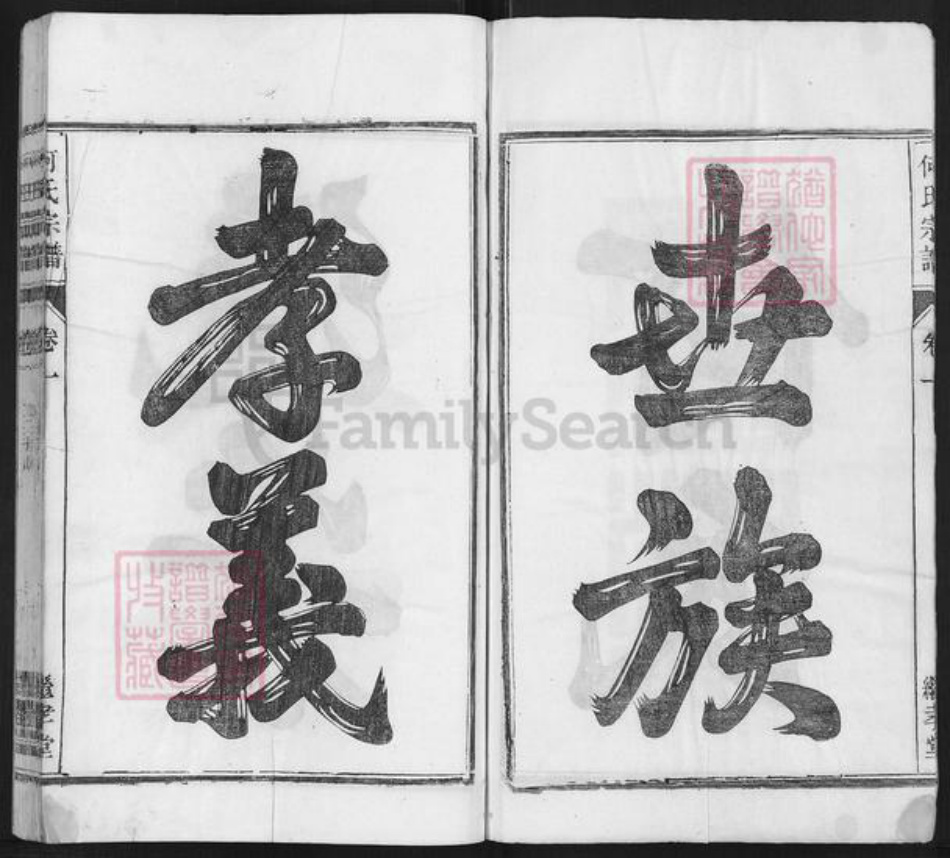 何氏宗譜
卷一
世族
FamilySearch
孝義
何氏宗譜
卷一
繼孝堂